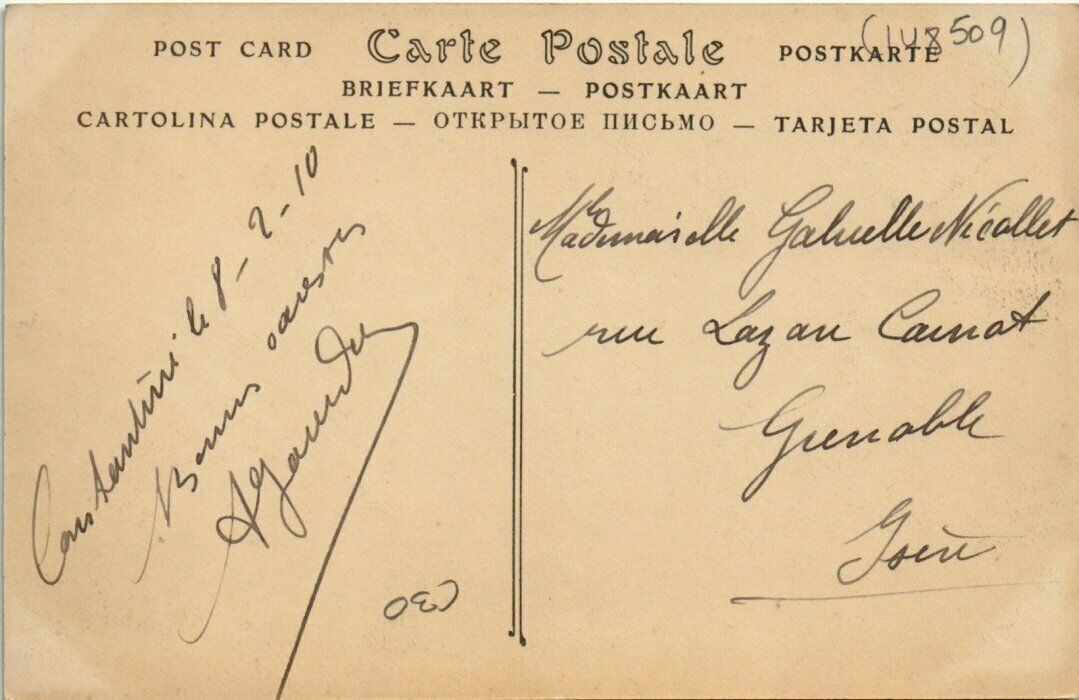 POST CARD Carte Postale POSTKARTE
(148509)
BRIEFKAART — POSTKAART
CARTOLINA POSTALE — ОТКРЫТОЕ ПИСЬМО — TARJETA POSTAL
Constantine le 8-2-10
Bonnes caresses
Mademoiselle Gabrielle Nicollet
rue Lazare Carnot
Grenoble
Isère
C30